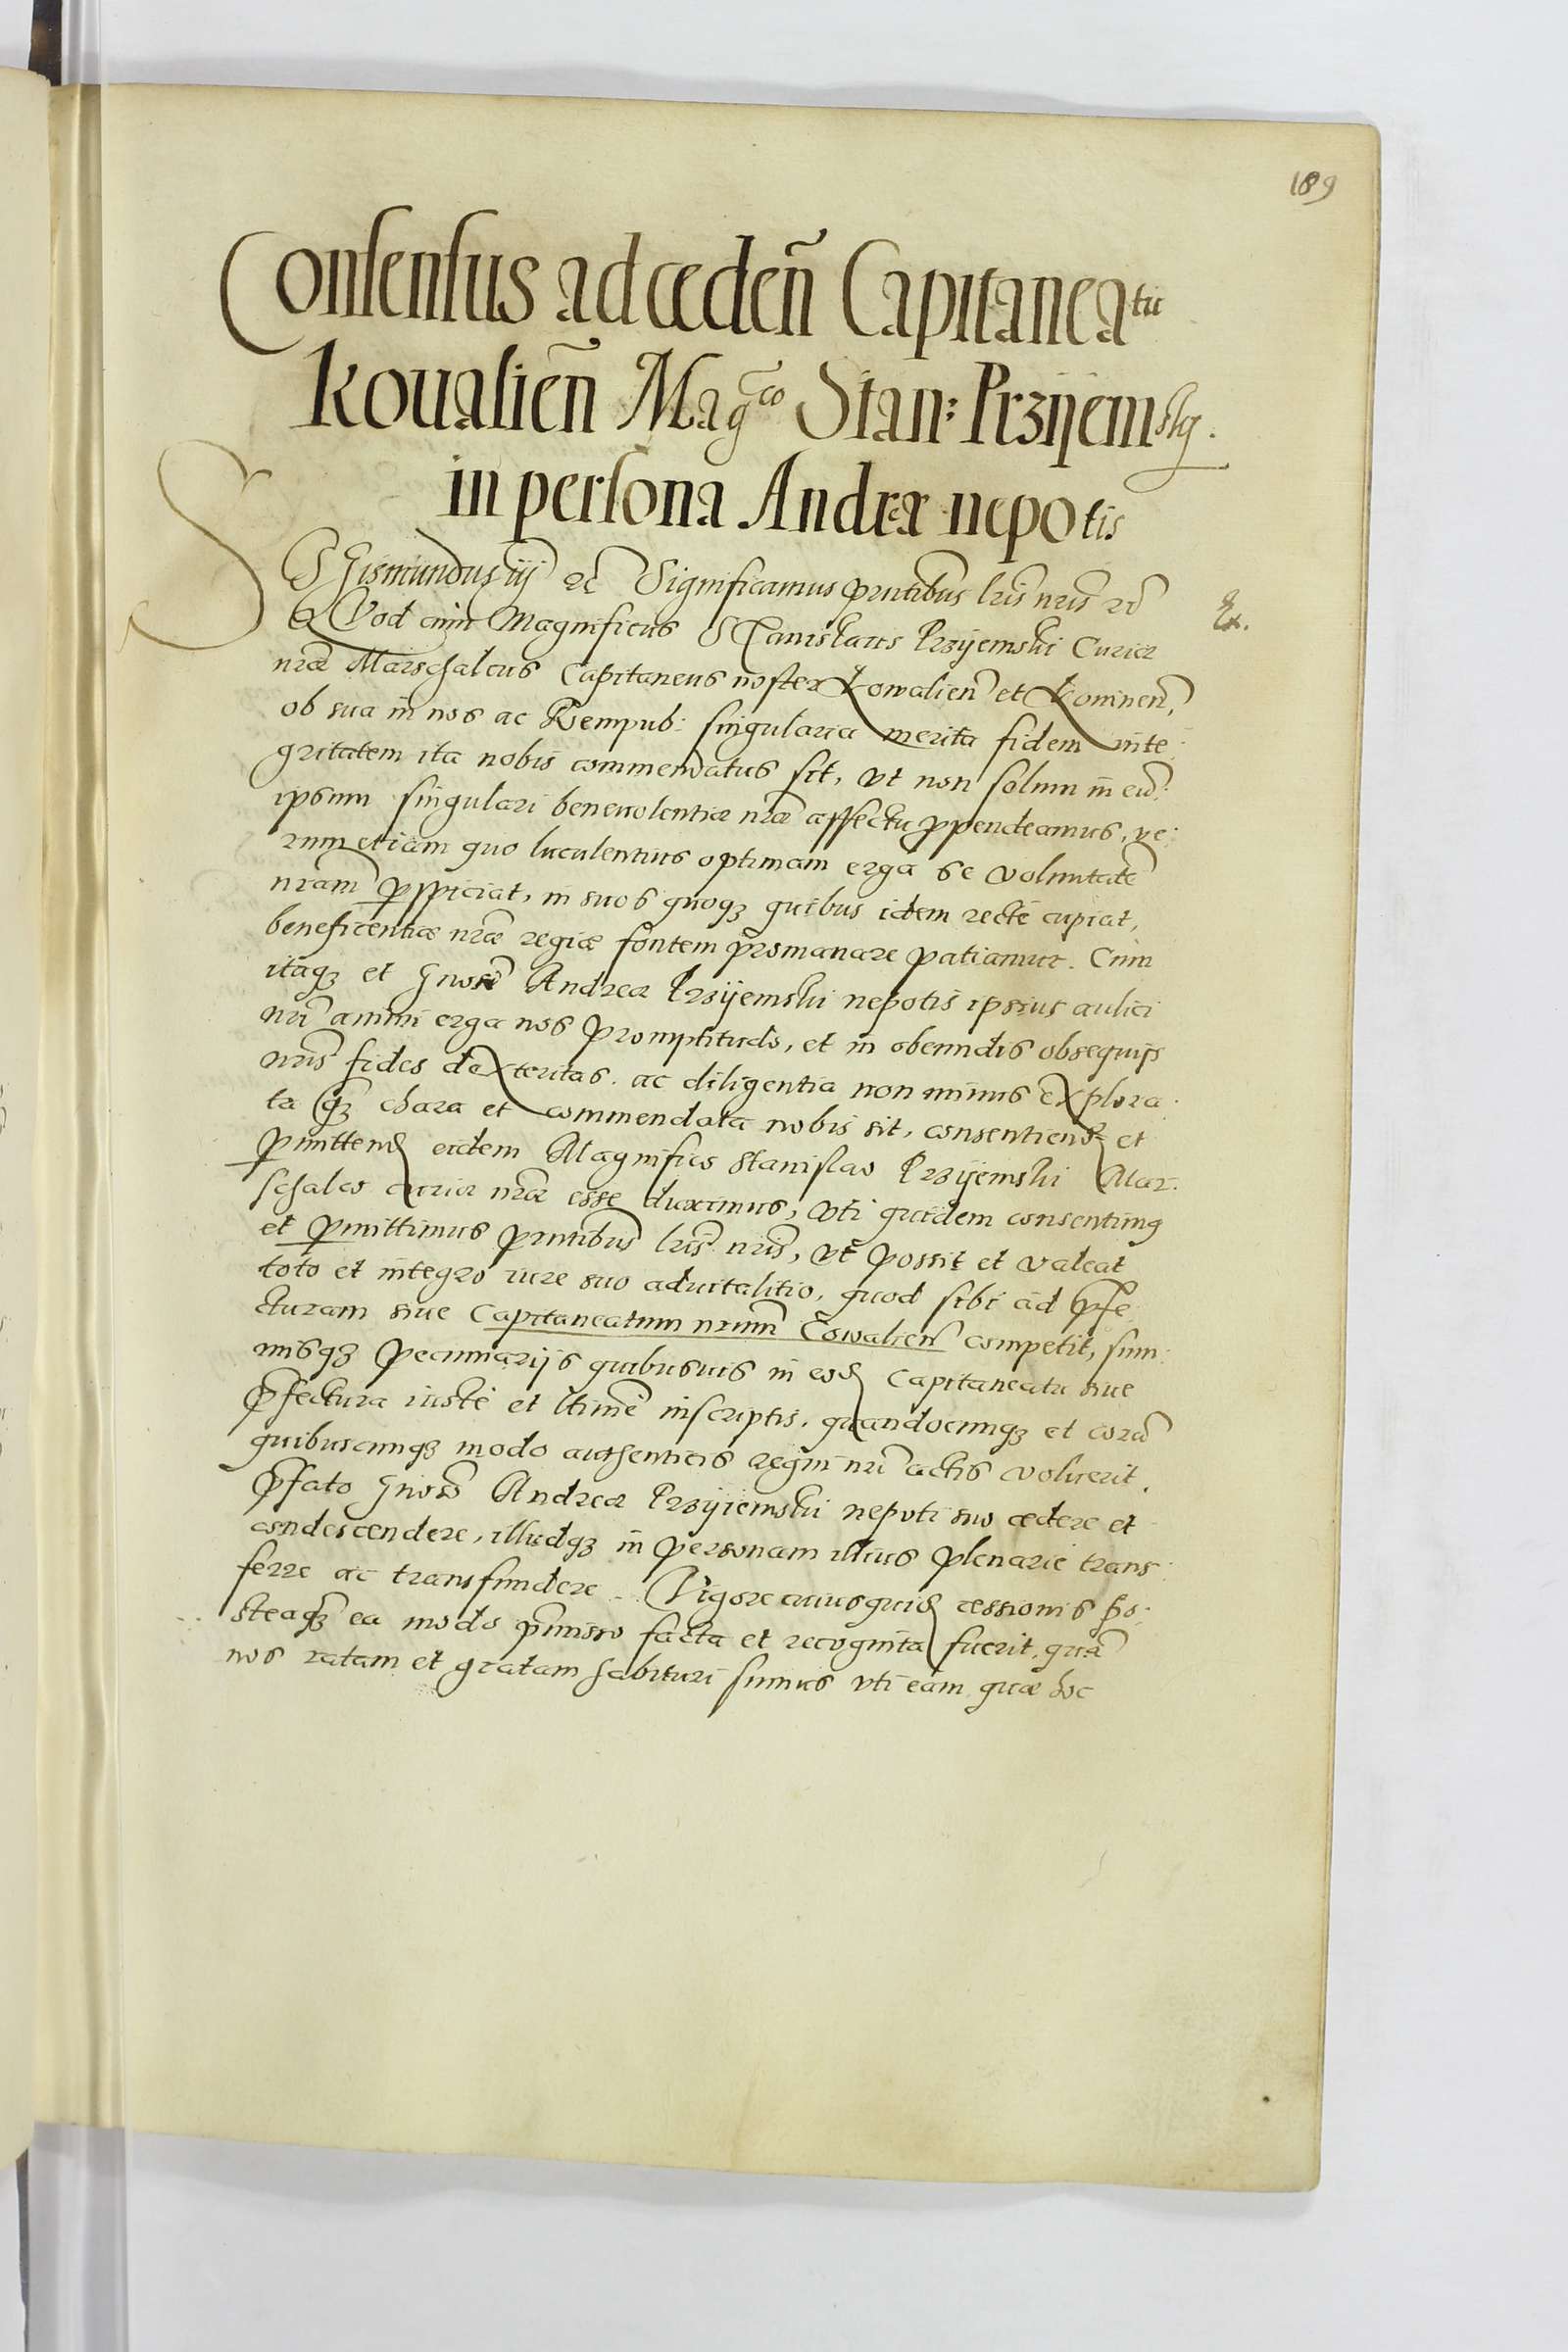 189
Consensus ad cedeñ Capitaneatu
Koualieñ Mag͠co Stan: Przÿemskÿ.
in persona Andreæ nepotis
SIgismundus iij etc̃ Significamus pn̄tibus lr̄is nr̄is etc̃
Ex.
QVod cum Magnificus STanislaus Przÿemski Curiæ
nr̄æ Marschalcus Capitaneus noster Kowalieñ et Konineñ,
ob sua in nos ac Rempub: singularia merita fidem inte:
gritatem ita nobis commendatus sit, vt non solum in eū:
ipsum singulari beneuolentiæ nr̄æ affectu ꝓpendeamus, ve:
rum etiam quo luculentius optimam erga se voluntatē
nr̄am ꝑspiciat, in suos quoqꝫ quibus idem recte cupiat,
beneficentiæ nr̄æ regiæ fontem promanare patiamur. Cum
itaqꝫ et Gnosi Andreæ Przÿemski nepotis ipsius aulici
nr̄i animi erga nos promptitudo, et in obeundis obsequijs
nr̄is fides dexteritas. ac diligentia non minus explora:
ta qꝫ chara et commendata nobis sit, consentiend̃ et
ꝑmittend̃ eidem Magnifico Stanislao Przÿemski Mar:
schalco curiæ nr̄æ esse duximus, vti quidem consentimꝯ
et ꝑmittimus pn̄tibus lr̄is nr̄is, vt possit et valeat
toto et integro iure suo aduitalitio, quod sibi ad p̄fe:
cturam siue Capitaneatum nr̄um Cowalieñ competit, sum:
misqꝫ pecuniarijs quibusuis in eod̃ Capitaneatu siue
p̄fectura iuste et ltime inscriptis. quandocunqꝫ et corā
quibuscunqꝫ modo authenticis regni nr̄i actis voluerit.
p̄fato Gnoso Andreæ Przÿiemski nepoti suo cedere et
condescendere, illudqꝫ in personam illius plenarie trans:
ferre ac transfundere. Vigore cuiusquid̃ cessionis po:
steaqꝫ ea modo p̄misso facta et recognita fuerit, quā
nos ratam et gratam habituri sumus vti eam quæ hoc